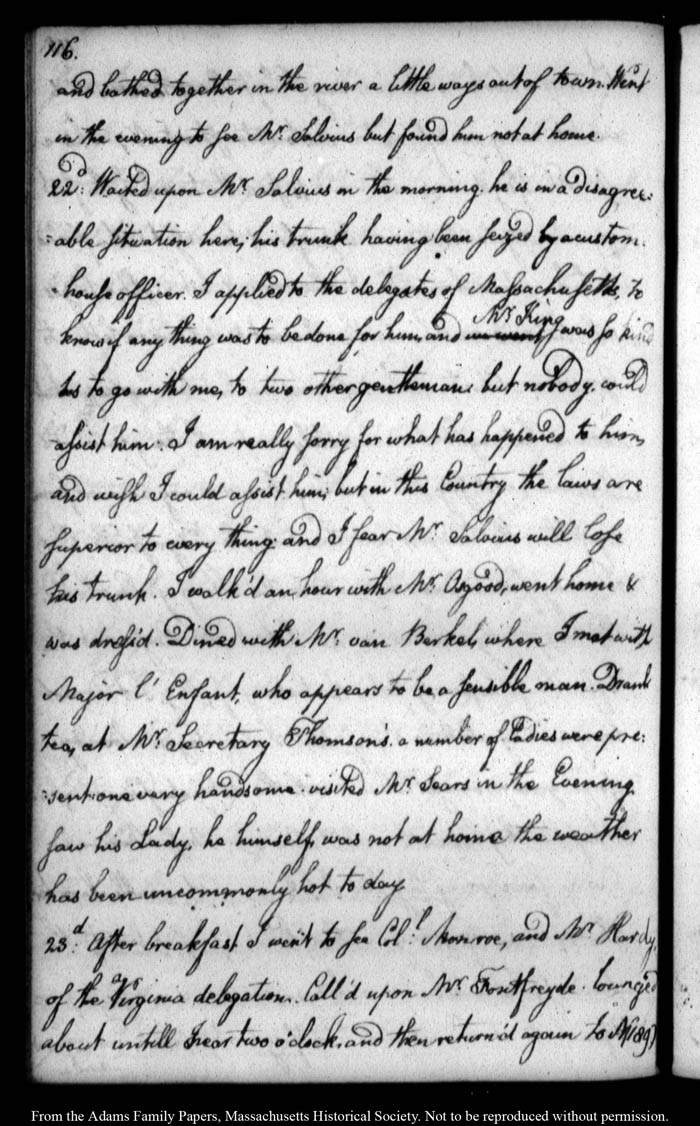 116.
and bathed together in the river a little ways out of town. Went
in the evening to see Mr. Salvius but found him not at home.
22d: Waited upon Mr. Salvius in the morning. he is in a disagree:
:able situation here; his trunk having been seized by a custom.
-house officer. I applied to the delegates of Massachusetts, to
know if any thing was to be done for him, and Mr. King was so kind
as to go with me, to two other gentlemen: but nobody. could
assist him: I am really sorry for what has happened to him,
and wish I could assist him; but in this Country the laws are
superior to every thing: and I fear Mr. Salvius will lose
his trunk. I walk'd an hour with Mr. Osgood, went home &
was dress'd. Dined with Mr. van Berkel, where I met with
Major l'Enfant, who appears to be a sensible man. Drank
tea, at Mr. Secretary Thomson's. a number of Ladies were pre:
:sent: one very handsome. visited Mr. Sears in the Evening.
saw his Lady, he himself, was not at home the weather
has been uncommonly hot to day
23d: After breakfast I went to see Coll. Monroe, and Mr. Hardy,
of the Virginia delegation. Call'd upon Mr. Fontfreyde. lounged
about untill near two o'clock, and then return'd again to
From the Adams Family Papers, Massachusetts Historical Society. Not to be reproduced without permission.